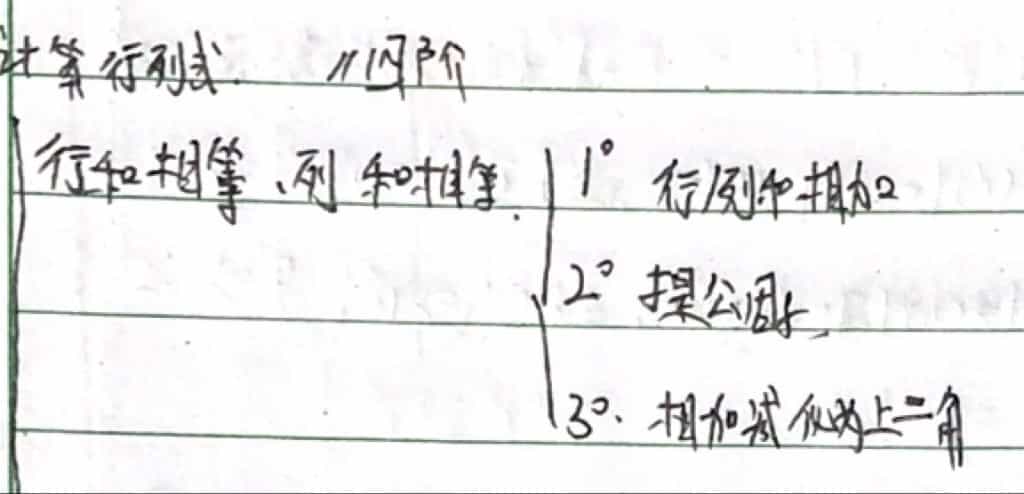 计算行列式. //四阶
行和相等、列和相等. 1° 行/列和相加
2° 提公因子,
3°. 相加减化为上三角